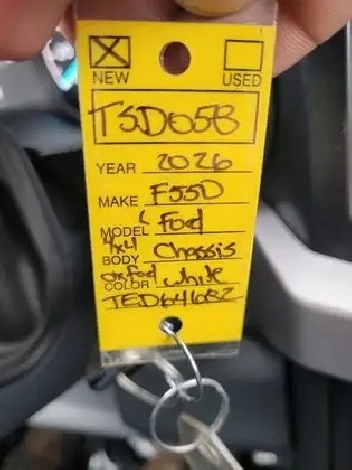 NEW USED
TSD65B
YEAR 2026
MAKE F550
MODEL Ford
4x4
BODY Chassis
oxford
COLOR white
TED64682